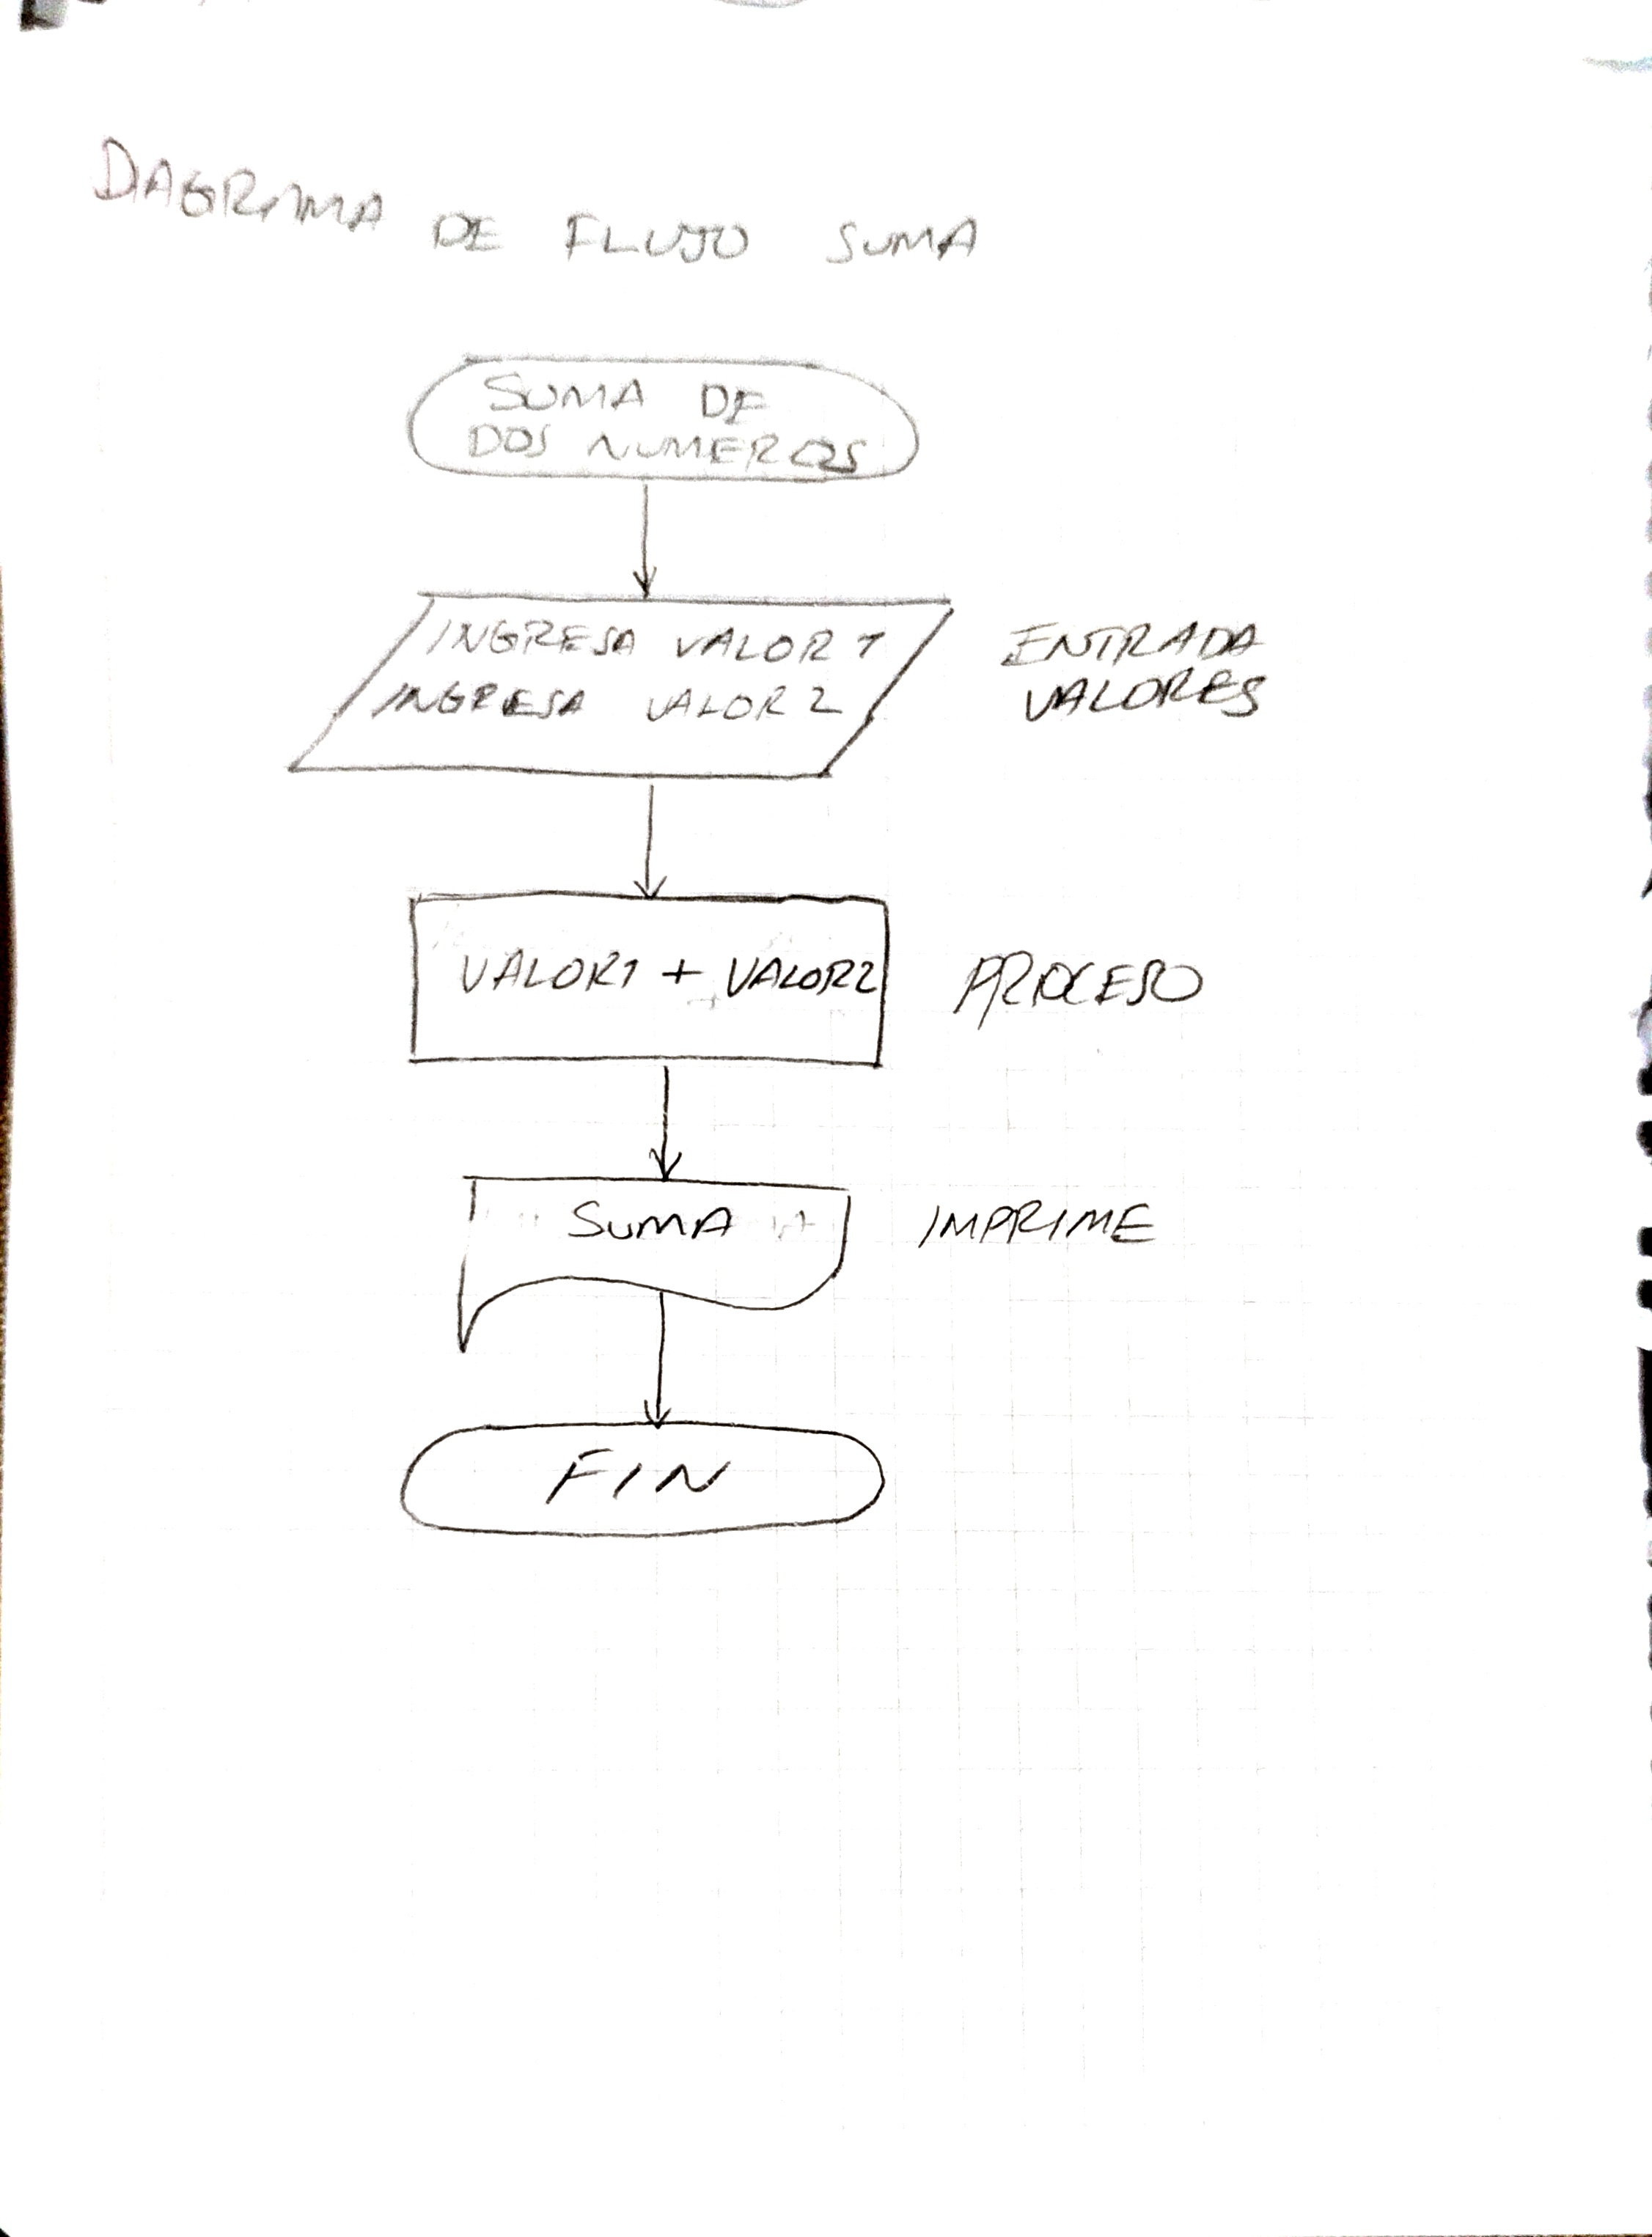 DAGRAMA DE FLUJO SUMA
SUMA DE
DOS NUMEROS
INGRESA VALOR 1
INGRESA VALOR 2
ENTRADA
VALORES
VALOR1 + VALOR2
PROCESO
SUMA
IMPRIME
FIN